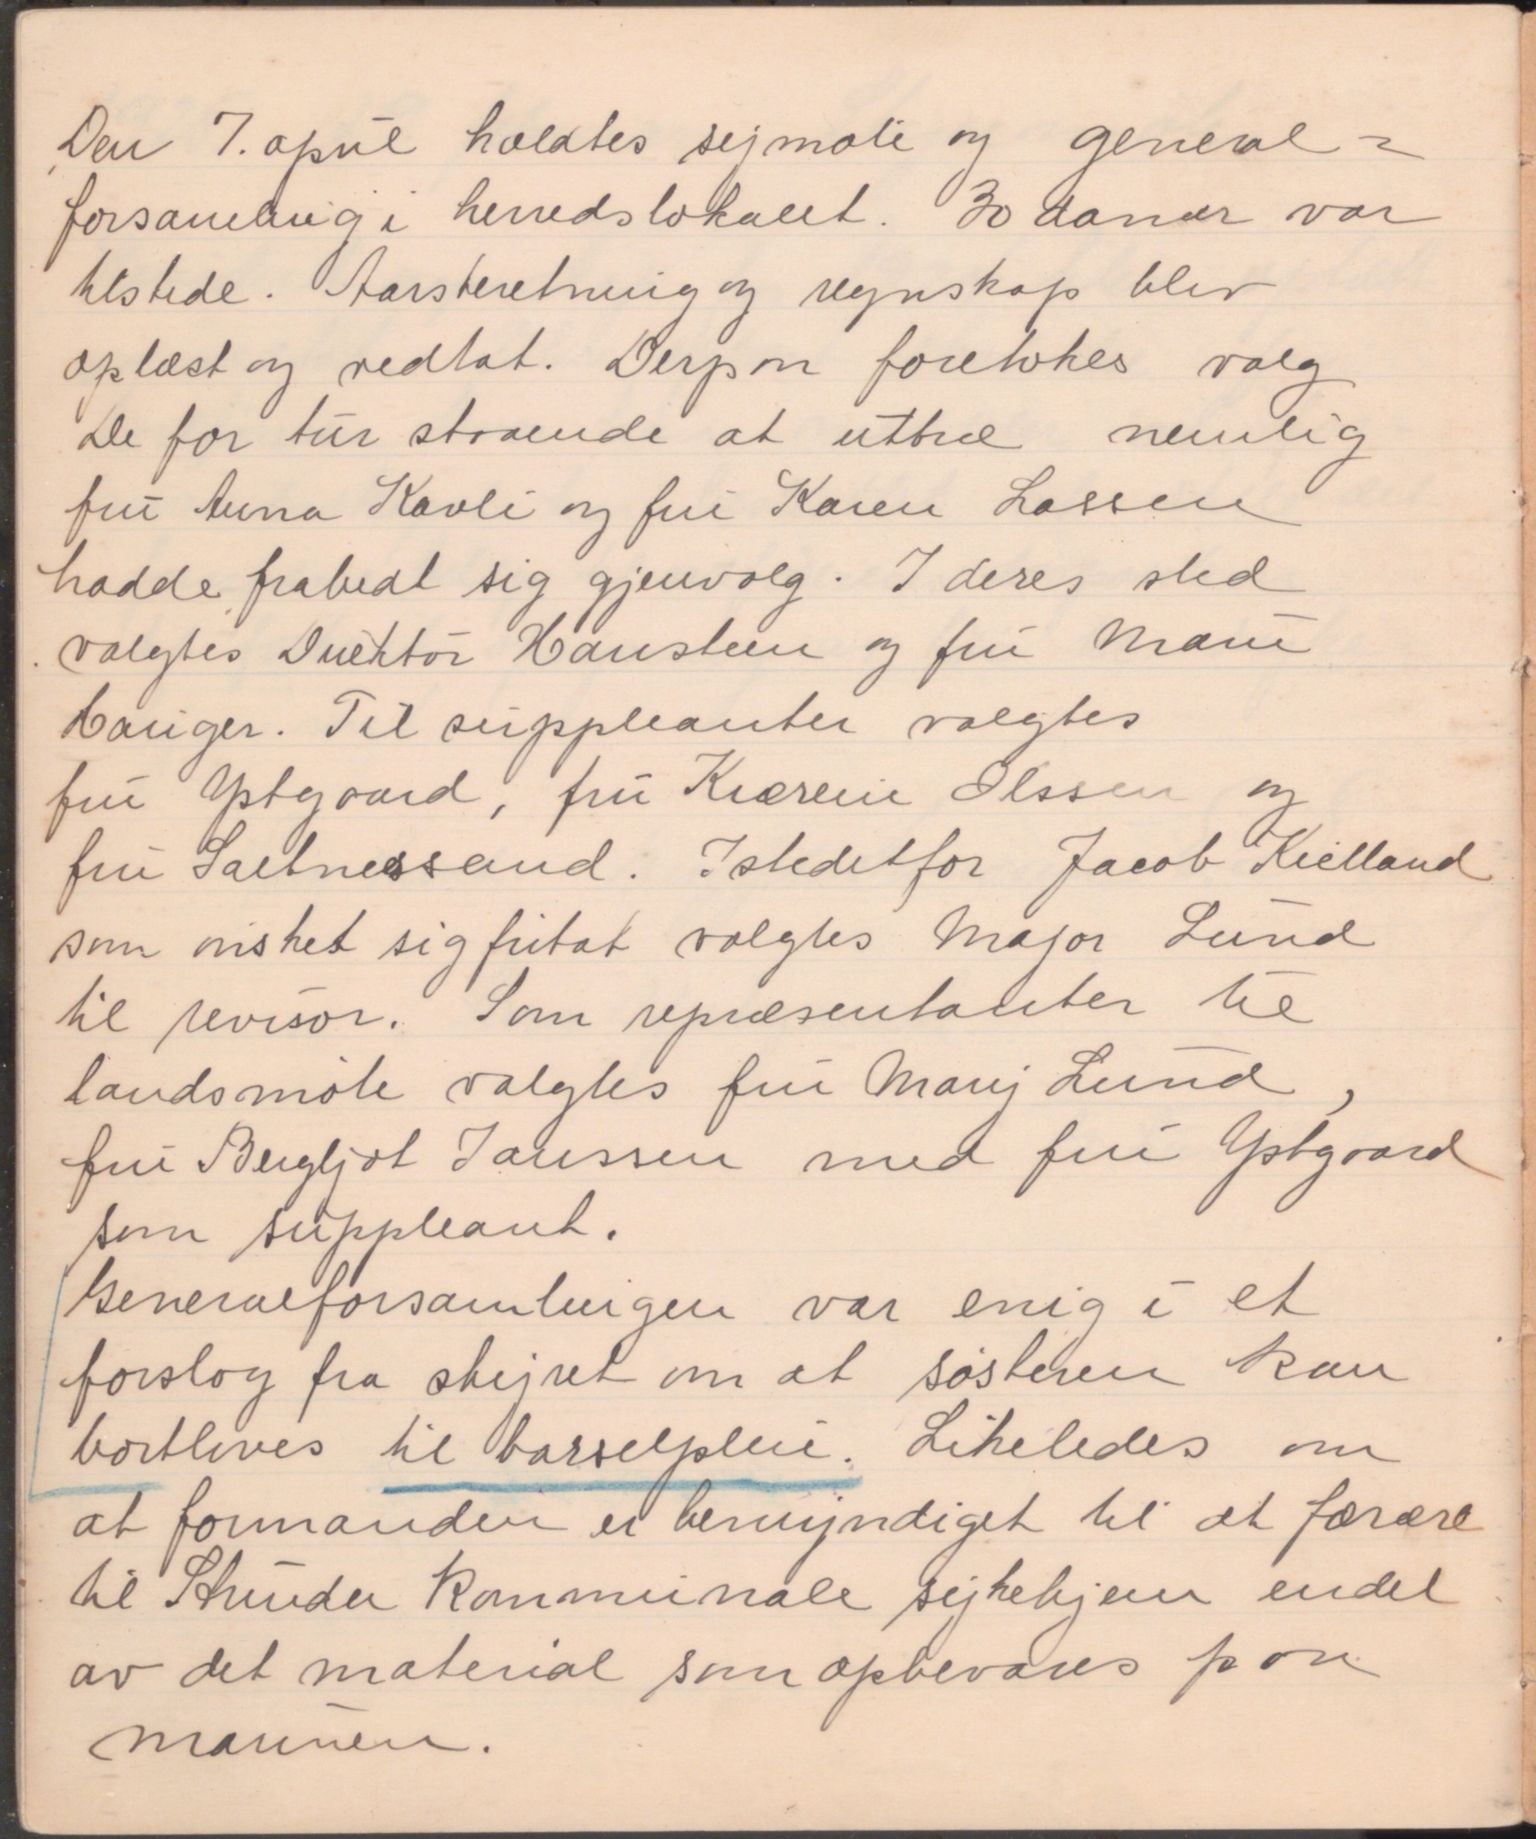 Den 7. april holdtes symøte og general=
forsamling i herredslokalet. 30 damer var
tilstede. Aarsberetning og regnskap blev
oplæst og vedtat. Derpaa foretokes valg
De for tur staaende at uttræ nemlig
fru Anna Kavli og fru Karen Lassen
hadde frabedt sig gjenvalg. I deres sted
valgtes Direktør Hansteen og fru Marie
Hauger. Til suppleanter valgtes
fru Ystgaard, fru Olssen og
fru Saltnessand. Istedetfor Jacob Kielland
som ønsket sig fritat valgtes Major Lund
til revisor. Som repræsentanter til
landsmøte valgtes fru Mary Lund,
fru Bergljot Janssen med fru Ystgaard
som suppleant.
Generalforsamlingen var enig i et
forslag fra styret om at søsteren kan
bortleies til barselpleie. Likeledes om
at formanden er bemyndiget til at forære
til Strinden kommunale sykehjem endel
av det material som opbevares paa